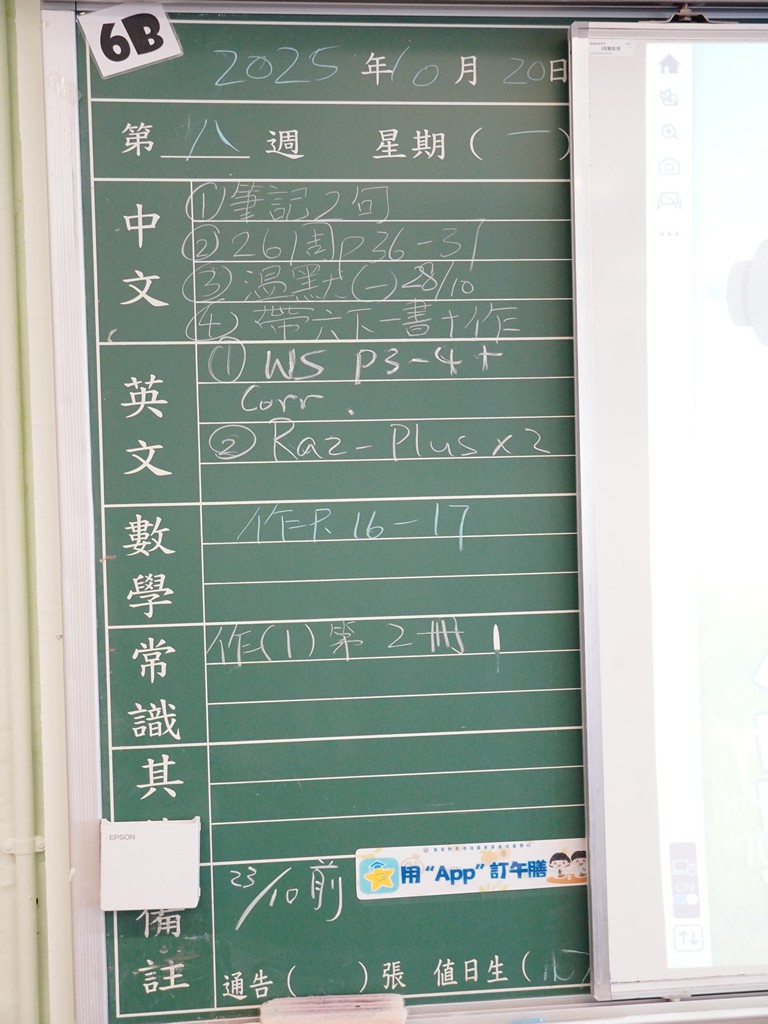 6B
2025年10月20日
第八週 星期(一)
中文
①筆記2句
②261周P36-37
③温默(一)28/10
④帶六下一書+作
英文
① WS P3-4+
Corr.
② Raz-Plus x2
數學
作P.16-17
常識
作(1)第2冊
其
EPSON
23/10前
用“App”訂午膳
備註
通告( )張 值日生( )
ON